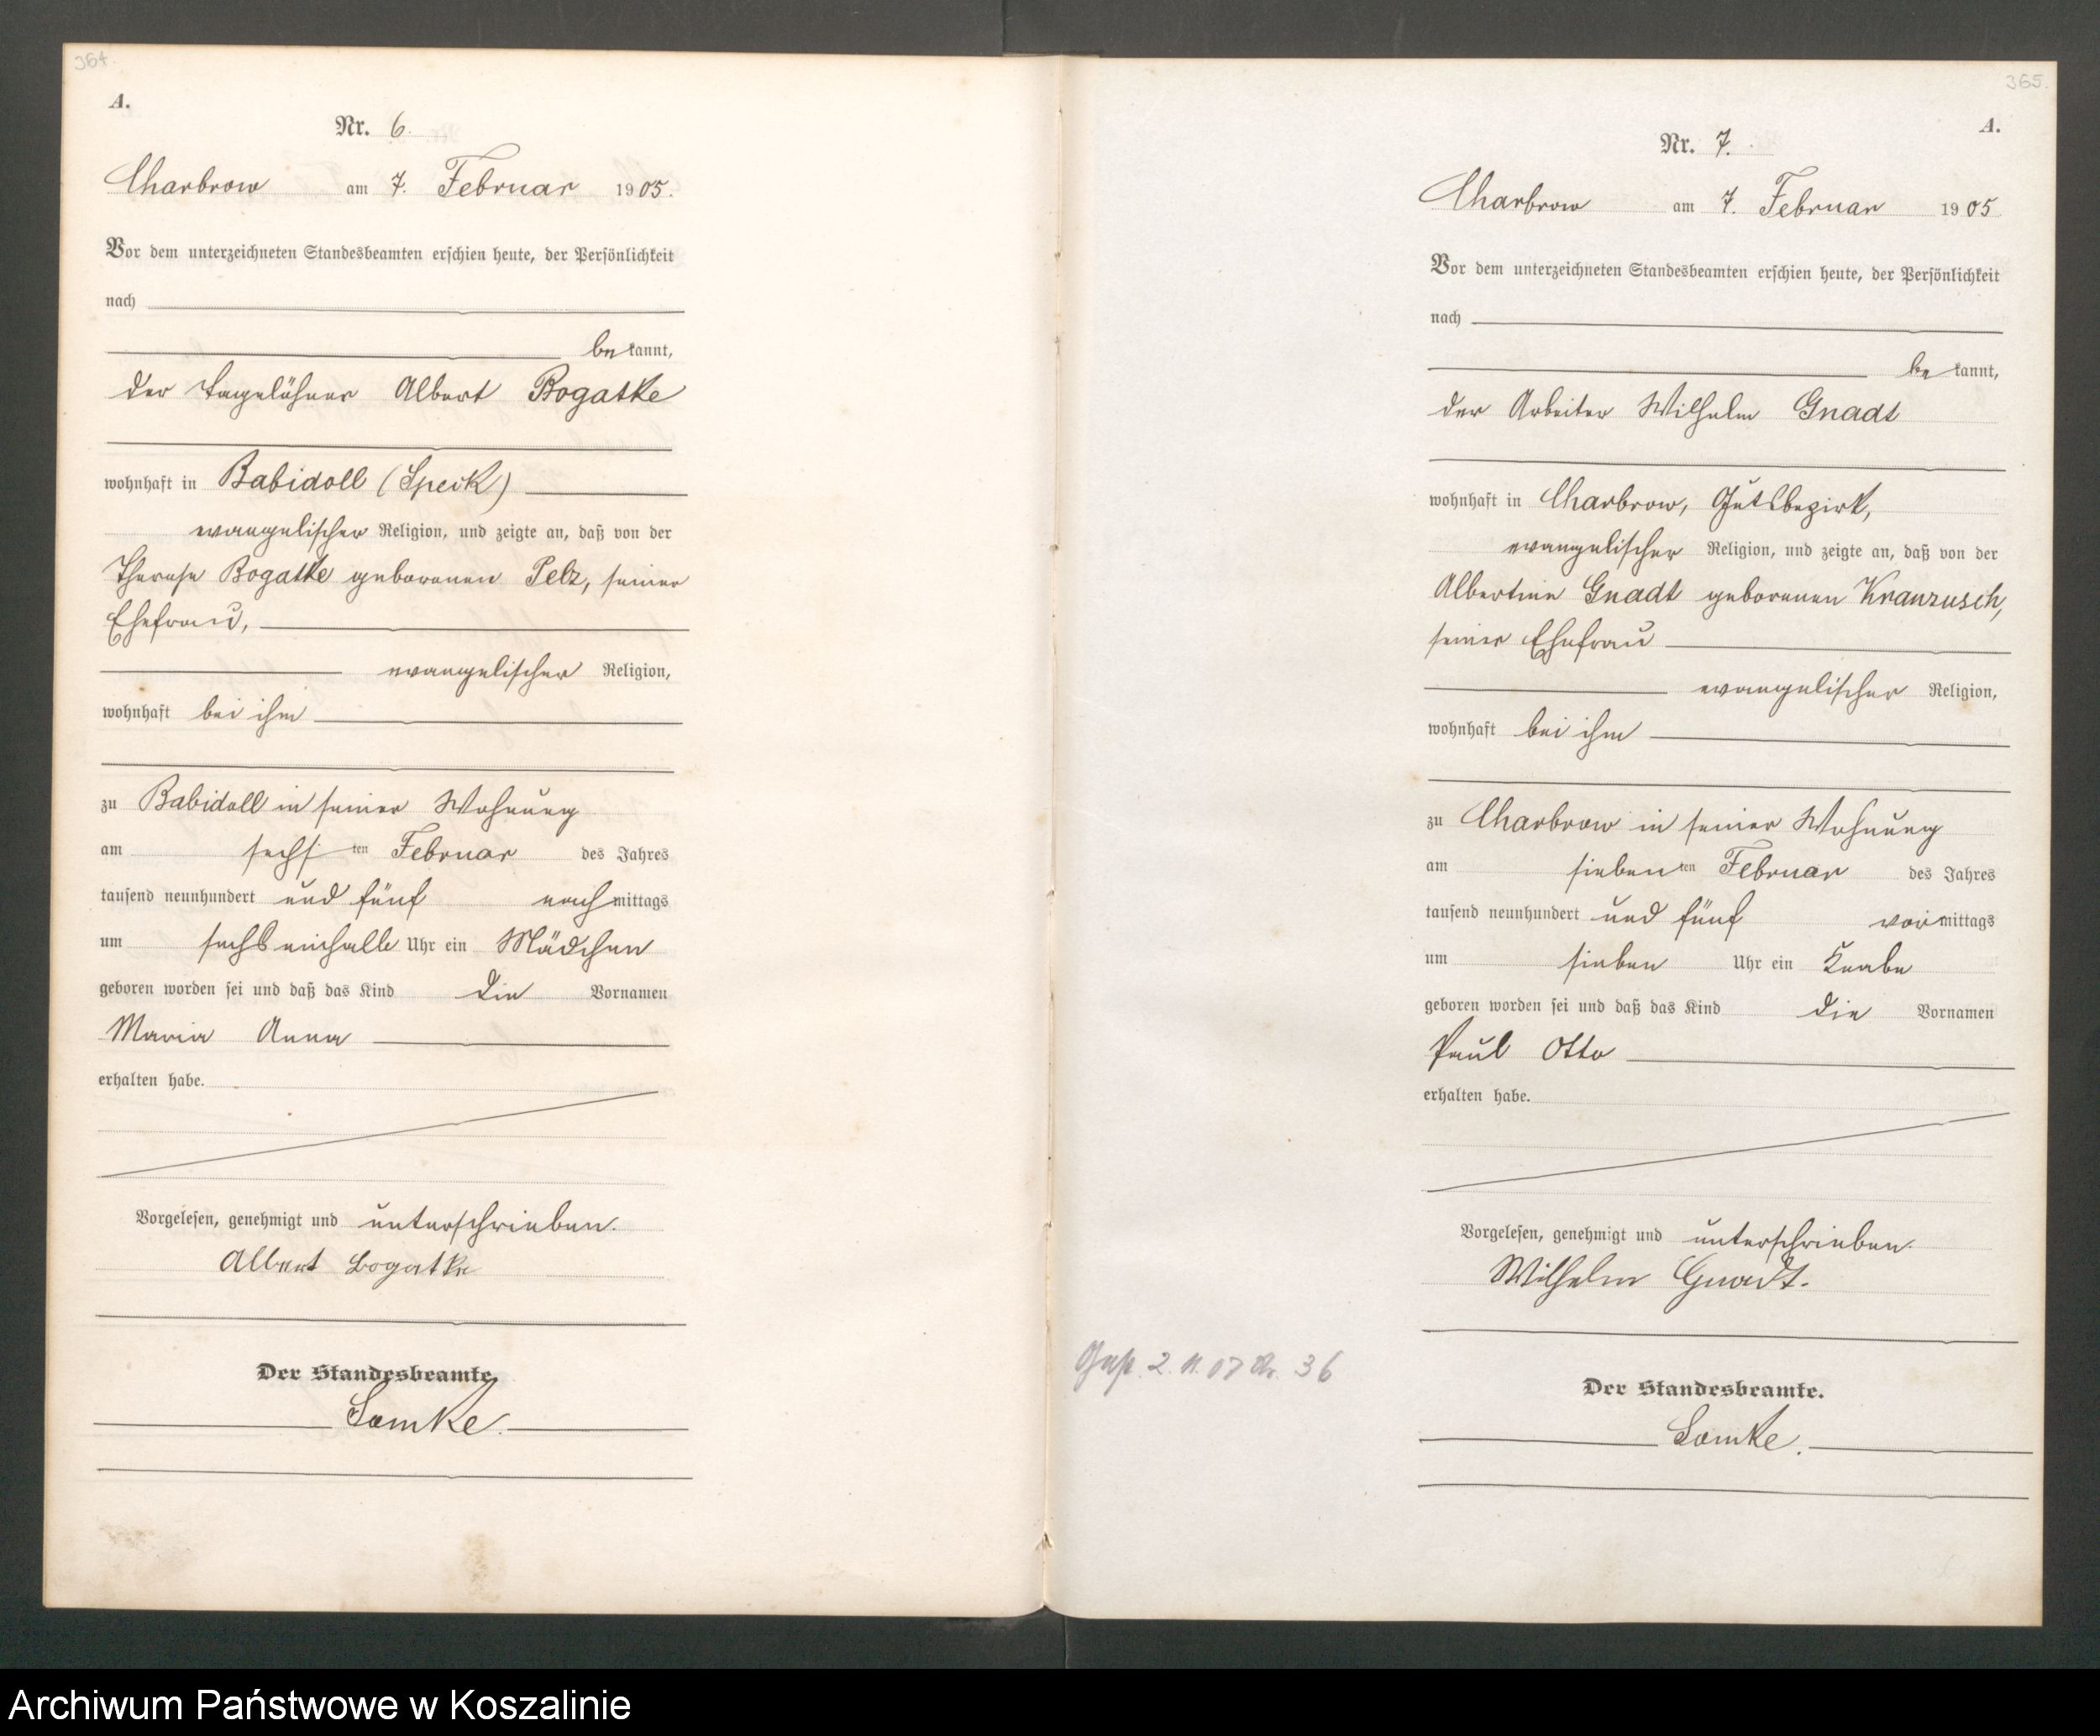 364.
A.
Nr. 6.
Charbrow am 7. Februar 1905.
Vor dem unterzeichneten Standesbeamten erschien heute, der Persönlichkeit
nach
bekannt,
der Tagelöhner Albert Bogatke
wohnhaft in Babidoll (Speck)
evangelischer Religion, und zeigte an, daß von der
Therese Bogatke geborenen Pelz, seiner
Ehefrau,
evangelischer Religion,
wohnhaft bei ihm
zu Babidoll in seiner Wohnung
am sechsten Februar des Jahres
tausend neunhundert und fünf nachmittags
um sechseinhalb Uhr ein Mädchen
geboren worden sei und daß das Kind die Vornamen
Maria Anna
erhalten habe.
Vorgelesen, genehmigt und unterschrieben.
Albert Bogatke
Der Standesbeamte.
Lemke.
365.
A.
Nr. 7.
Charbrow am 7. Februar 1905
Vor dem unterzeichneten Standesbeamten erschien heute, der Persönlichkeit
nach
bekannt,
der Arbeiter Wilhelm Gnadt
wohnhaft in Charbrow, Gutsbezirk,
evangelischer Religion, und zeigte an, daß von der
Albertine Gnadt geborenen Kranzusch,
seiner Ehefrau
evangelischer Religion,
wohnhaft bei ihm
zu Charbrow in seiner Wohnung
am siebenten Februar des Jahres
tausend neunhundert und fünf vormittags
um sieben Uhr ein Knabe
geboren worden sei und daß das Kind die Vornamen
Paul Otto
erhalten habe.
Vorgelesen, genehmigt und unterschrieben.
Wilhelm Gnadt.
Der Standesbeamte.
Lemke.
2. 11. 07 Nr. 36
Archiwum Państwowe w Koszalinie